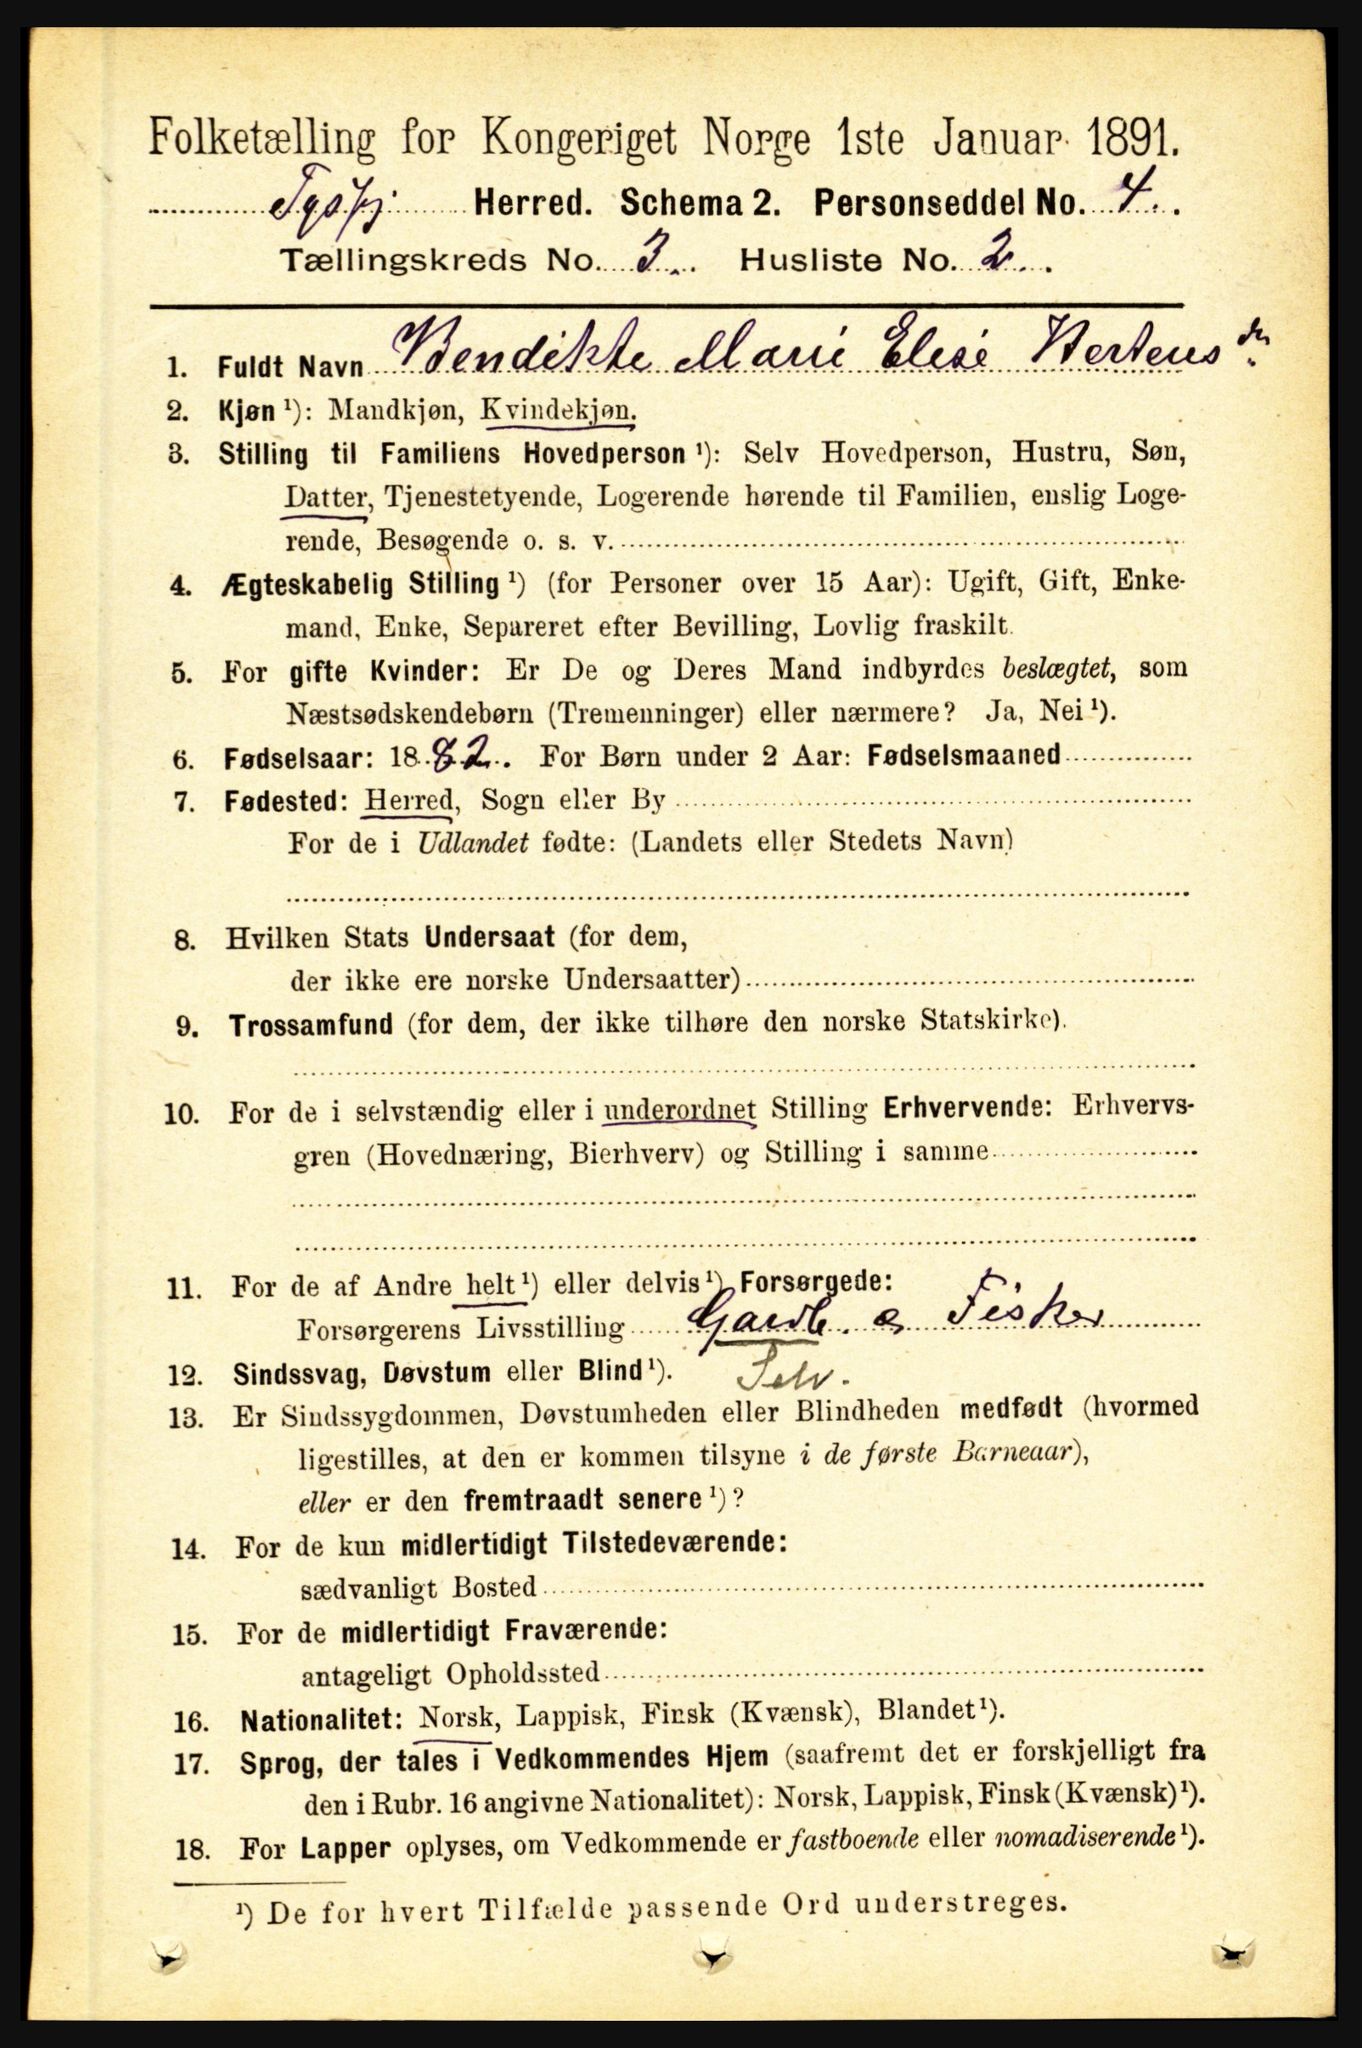 Folketælling for Kongeriget Norge 1ste Januar 1891.
Tysfj Herred. Schema 2. Personseddel No. 4.
Tællingskreds No. 3. Husliste No. 2.
1. Fuldt Navn Bendikte Marie Elise Hertensdr.
2. Kjøn ¹): Mandkjøn, Kvindekjøn.
3. Stilling til Familiens Hovedperson ¹): Selv Hovedperson, Hustru, Søn,
Datter, Tjenestetyende, Logerende hørende til Familien, enslig Loge-
rende, Besøgende o. s. v.
4. Ægteskabelig Stilling ¹) (for Personer over 15 Aar): Ugift, Gift, Enke-
mand, Enke, Separeret efter Bevilling, Lovlig fraskilt.
5. For gifte Kvinder: Er De og Deres Mand indbyrdes beslægtet, som
Næstsødskendebørn (Tremenninger) eller nærmere? Ja, Nei ¹).
6. Fødselsaar: 1882. For Børn under 2 Aar: Fødselsmaaned
7. Fødested: Herred, Sogn eller By
For de i Udlandet fødte: (Landets eller Stedets Navn)
8. Hvilken Stats Undersaat (for dem,
der ikke ere norske Undersaatter)
9. Trossamfund (for dem, der ikke tilhøre den norske Statskirke).
10. For de i selvstændig eller i underordnet Stilling Erhvervende: Erhvervs-
gren (Hovednæring, Bierhverv) og Stilling i samme
11. For de af Andre helt ¹) eller delvis ¹) Forsørgede:
Forsørgerens Livsstilling Gaardb. o Fisker
12. Sindssvag, Døvstum eller Blind ¹). Selv.
13. Er Sindssygdommen, Døvstumheden eller Blindheden medfødt (hvormed
ligestilles, at den er kommen tilsyne i de første Barneaar),
eller er den fremtraadt senere ¹)?
14. For de kun midlertidigt Tilstedeværende:
sædvanligt Bosted
15. For de midlertidigt Fraværende:
antageligt Opholdssted
16. Nationalitet: Norsk, Lappisk, Finsk (Kvænsk), Blandet ¹).
17. Sprog, der tales i Vedkommendes Hjem (saafremt det er forskjelligt fra
den i Rubr. 16 angivne Nationalitet): Norsk, Lappisk, Finsk (Kvænsk) ¹).
18. For Lapper oplyses, om Vedkommende er fastboende eller nomadiserende ¹).
¹) De for hvert Tilfælde passende Ord understreges.